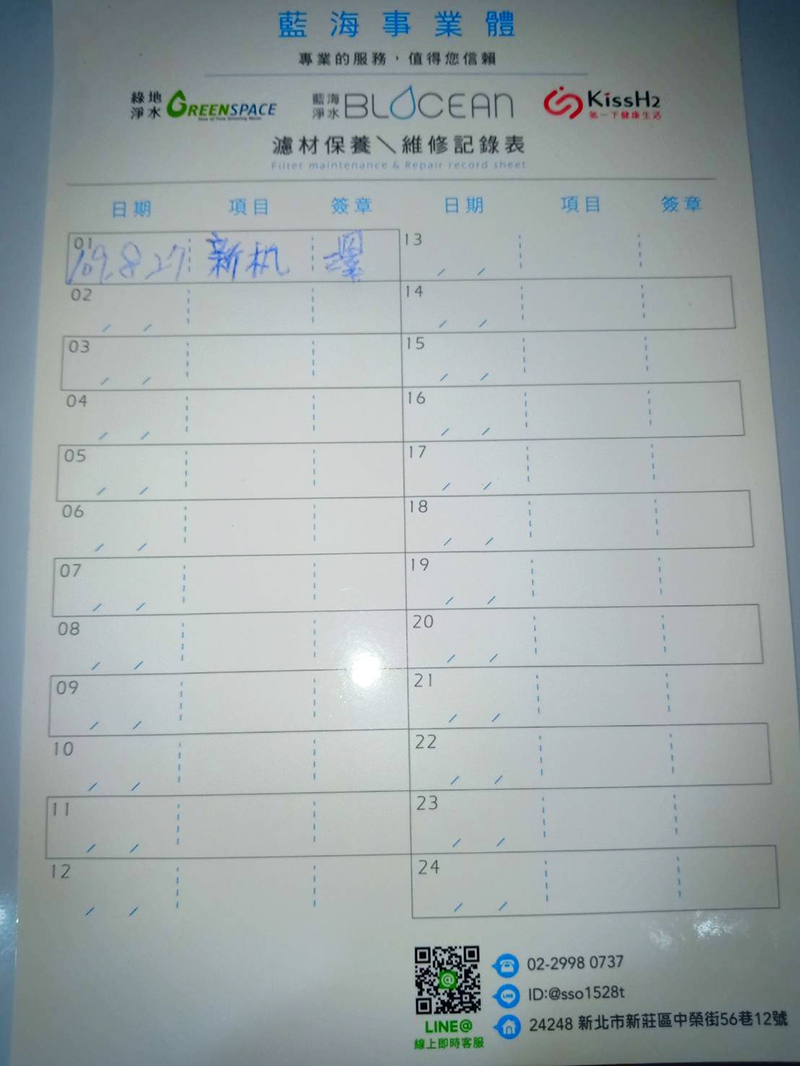 藍海事業體
專業的服務，值得您信賴
綠地淨水 GREENSPACE 藍海淨水 BLOCEAN KissH2 氫一下健康生活
濾材保養＼維修記錄表
Filter maintenance & Repair record sheet
日期 項目 簽章 日期 項目 簽章
01 109.8.27 新机
13 / /
02 / /
14 / /
03 / /
15 / /
04 / /
16 / /
05 / /
17 / /
06 / /
18 / /
07 / /
19 / /
08 / /
20 / /
09 / /
21 / /
10 / /
22 / /
11 / /
23 / /
12 / /
24 / /
02-2998 0737
ID:@sso1528t
24248 新北市新莊區中榮街56巷12號
LINE@
線上即時客服